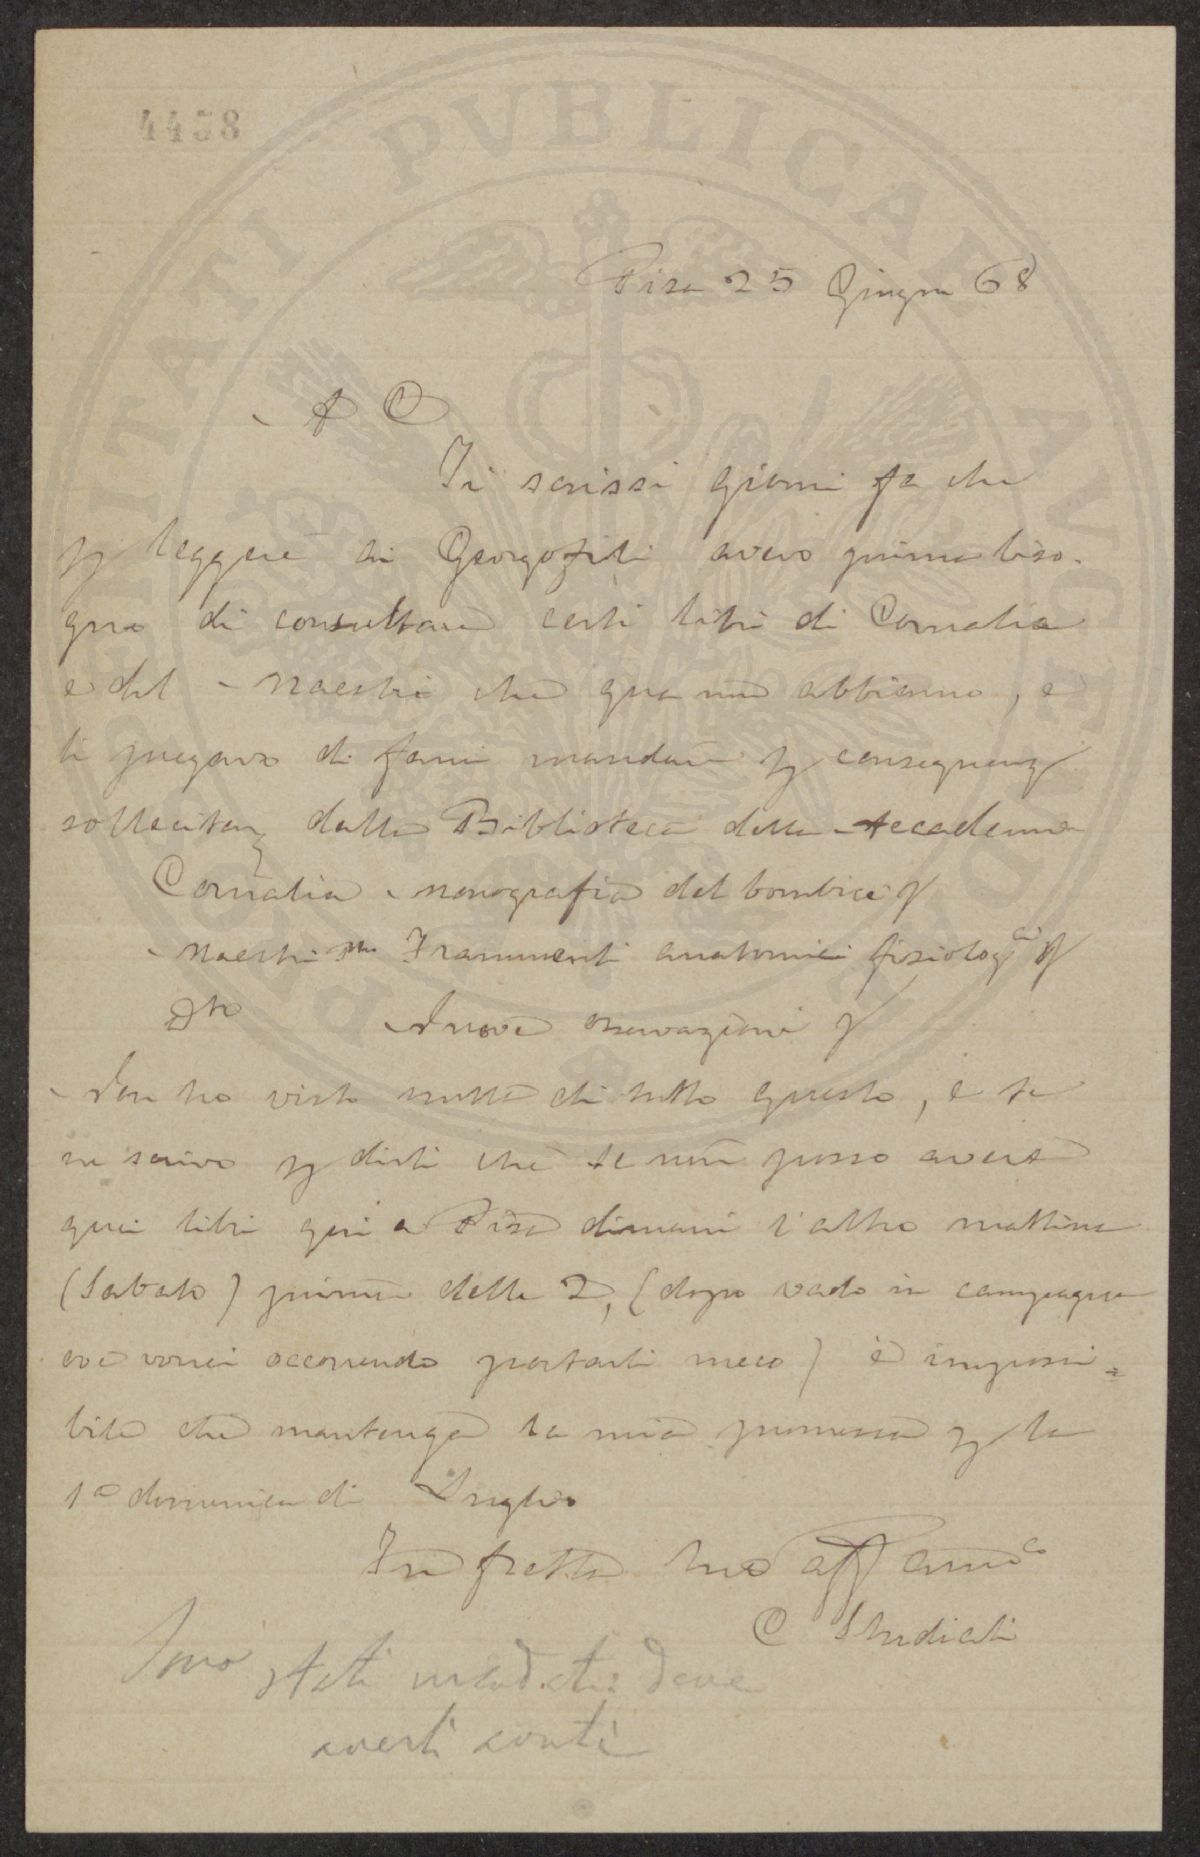 4458
Pisa 25 Giugno 68
A C
Ti scrissi giorni fa che
p leggere ai Georgofili avevo prima biso-
gno di consultare certi libri di Cornalia
e del Maestri che qua non abbiamo, e
ti pregavo di farmi mandare p conseguenza
sollecitam dalla Biblioteca della Accademia
Cornalia Monografia del bombice
Maestri Frammenti anatomici fisiologci
Dto Nuove osservazioni
Non ho visto nulla di tutto questo, e te
ne scrivo p dirti che se non posso avere
quei libri qui a Pisa dimani l'altro mattina
(Sabato) prima delle 2, (dopo vado in campagna
ove vorrei occorrendo portarli meco) è impossi=
bile che mantenga la mia promessa p la
1a domenica di Luglio
In fretta tuo aff amico
C Studiati
Sono stati mandati deve
averli